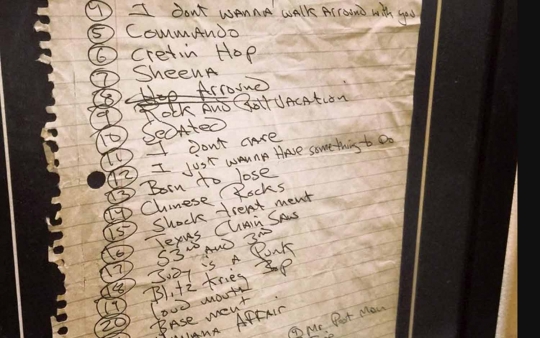 4 I dont WANNA WALK ARROUND with you
5 COMMANDO
6 Cretin Hop
7 Sheena
8 Hop Arround
9 Rock AND Roll VACATION
10 SedATED
11 I dont care
12 I just WANNA HAVE something to do
13 Born to lose
14 Chinese Rocks
15 Shock treat ment
Texas Chain Saw
16 53rd AND 3rd
17 Judy is A Punk
18 Blitz krieg Bop
19 loud mouth
20 Base ment
AFFAIR